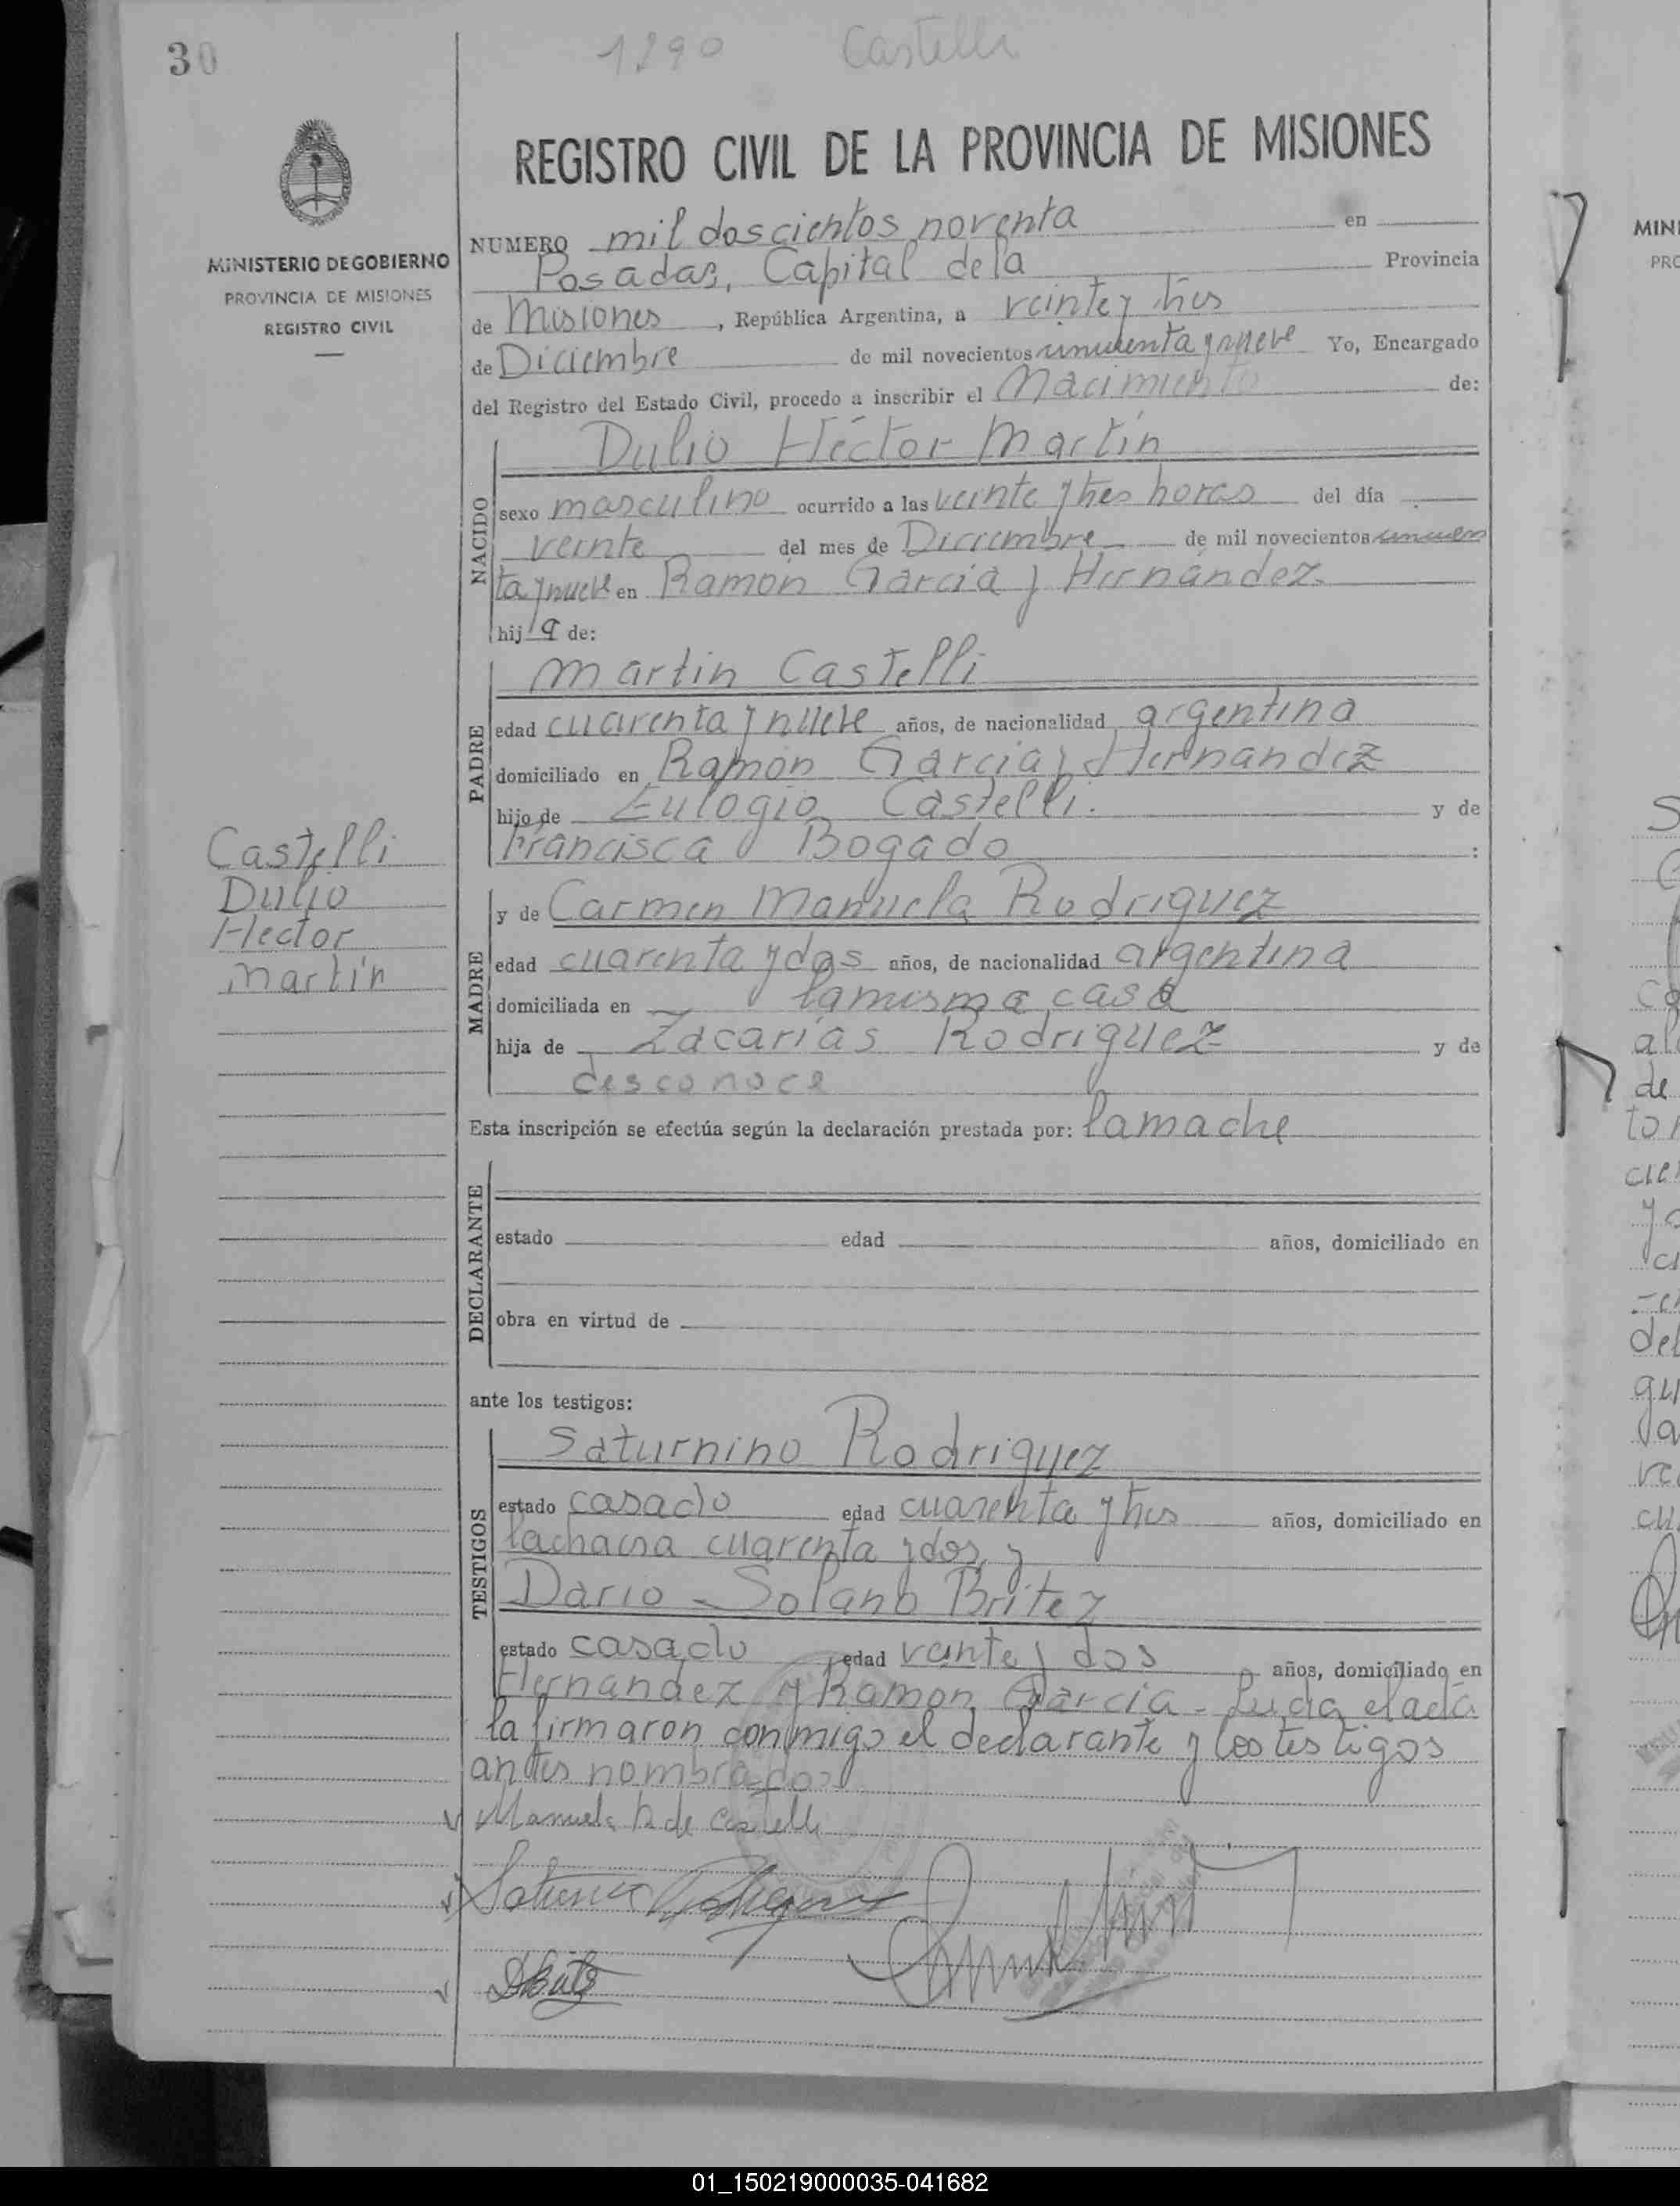 30
1290 Castelli
MINISTERIO DE GOBIERNO
PROVINCIA DE MISIONES
REGISTRO CIVIL
REGISTRO CIVIL DE LA PROVINCIA DE MISIONES
NUMERO mil doscientos noventa en
Posadas, Capital de la Provincia
de Misiones, República Argentina, a veinte y tres
de Diciembre de mil novecientos cincuenta y nueve Yo, Encargado
del Registro del Estado Civil, procedo a inscribir el Nacimiento de:
NACIDO
Dulio Héctor Martín
sexo masculino ocurrido a las veinte y tres horas del día
veinte del mes de Diciembre de mil novecientos cincuen
ta y nueve en Ramón García y Hernández
hij de:
PADRE
Martin Castelli
edad cuarenta y nueve años, de nacionalidad argentina
domiciliado en Ramón García y Hernandez
hijo de Eulogio Castelli. y de
Francisca Bogado :
Castelli
Dulio
Hector
Martín
MADRE
y de Carmen Manuela Rodriguez
edad cuarenta y dos años, de nacionalidad argentina
domiciliada en la misma casa
hija de Zacarías Rodriguez y de
desconoce
Esta inscripción se efectúa según la declaración prestada por: la madre
DECLARANTE
estado edad años, domiciliado en
obra en virtud de
ante los testigos:
TESTIGOS
Saturnino Rodriguez
estado casado edad cuarenta y tres años, domiciliado en
la chacra cuarenta y dos, y
Dario Solano Britez
estado casado edad veinte y dos años, domiciliado en
Hernandez y Ramon García - Leida el acta
la firmaron conmigo el declarante y los testigos
antes nombrados
Manuela R de Castelli